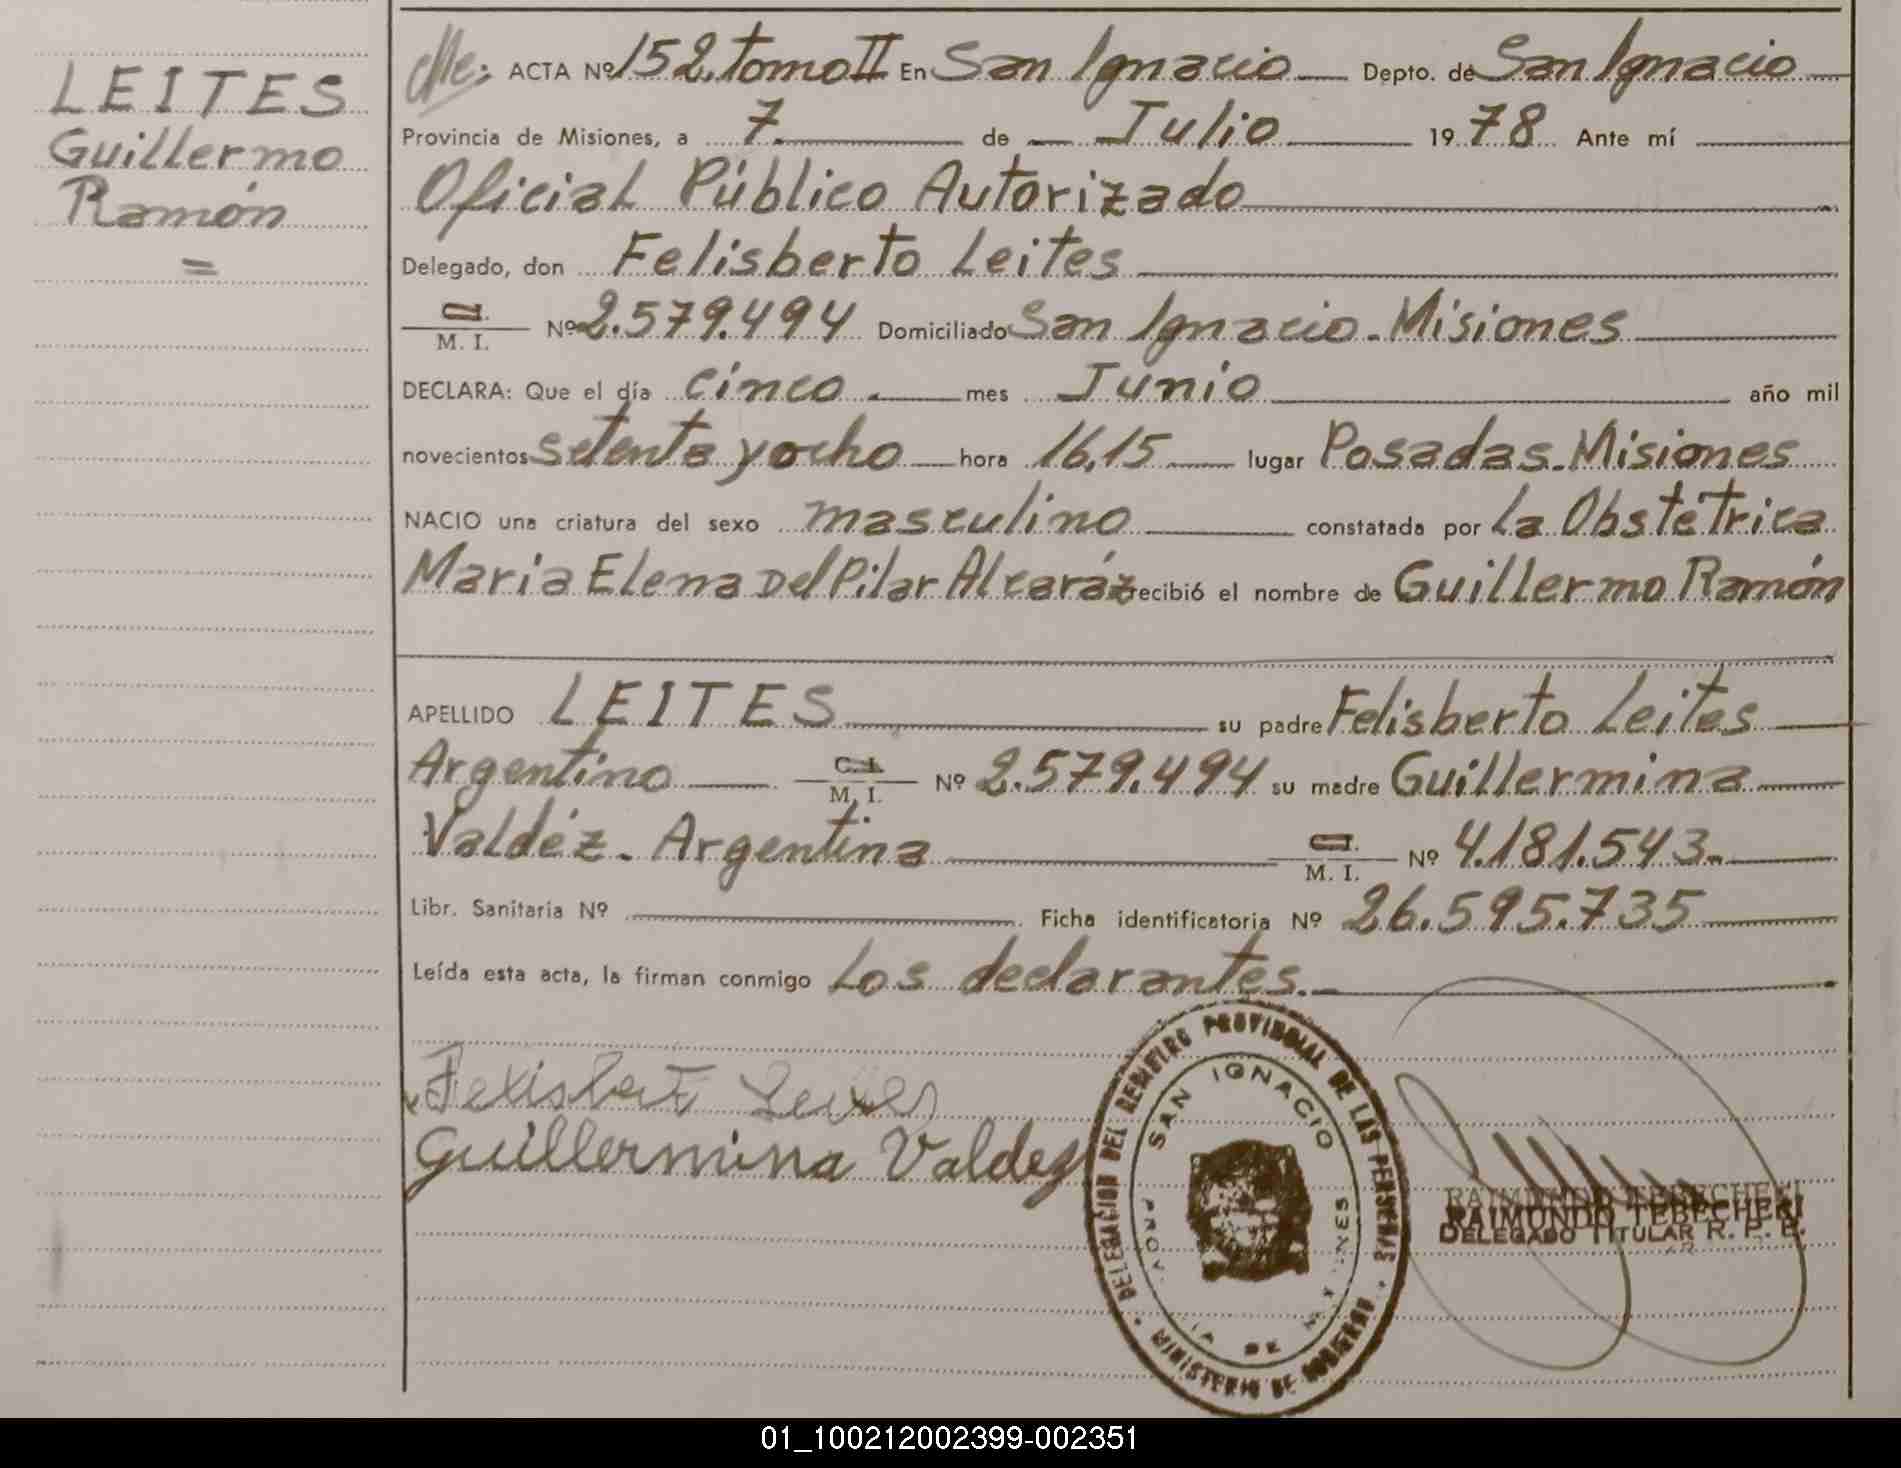 LEITES
Guillermo
Ramón
=
ACTA Nº 152. tomo II En San Ignacio Depto. de San Ignacio
Provincia de Misiones, a 7 de Julio 1978 Ante mí
Oficial Público Autorizado
Delegado, don Felisberto Leites
C.I.
M. I. Nº 2.579.494 Domiciliado San Ignacio - Misiones
DECLARA: Que el día cinco mes Junio año mil
novecientos setenta y ocho hora 16,15 lugar Posadas - Misiones
NACIO una criatura del sexo masculino constatada por La Obstétrica
Maria Elena Del Pilar Alcaráz recibió el nombre de Guillermo Ramón
APELLIDO LEITES su padre Felisberto Leites
Argentino C.I. M. I. Nº 2.579.494 su madre Guillermina
Valdéz - Argentina C.I. M. I. Nº 4.181.543.-
Libr. Sanitaria Nº Ficha identificatoria Nº 26.595.735
Leída esta acta, la firman conmigo Los declarantes.-
Guillermina Valdez
DELEGACION DEL REGISTRO PROVINCIAL DE LAS PERSONAS
SAN IGNACIO
MINISTERIO DE GOBIERNO
RAIMUNDO TEBECHERI
DELEGADO TITULAR R. P. P.
01_100212002399-002351